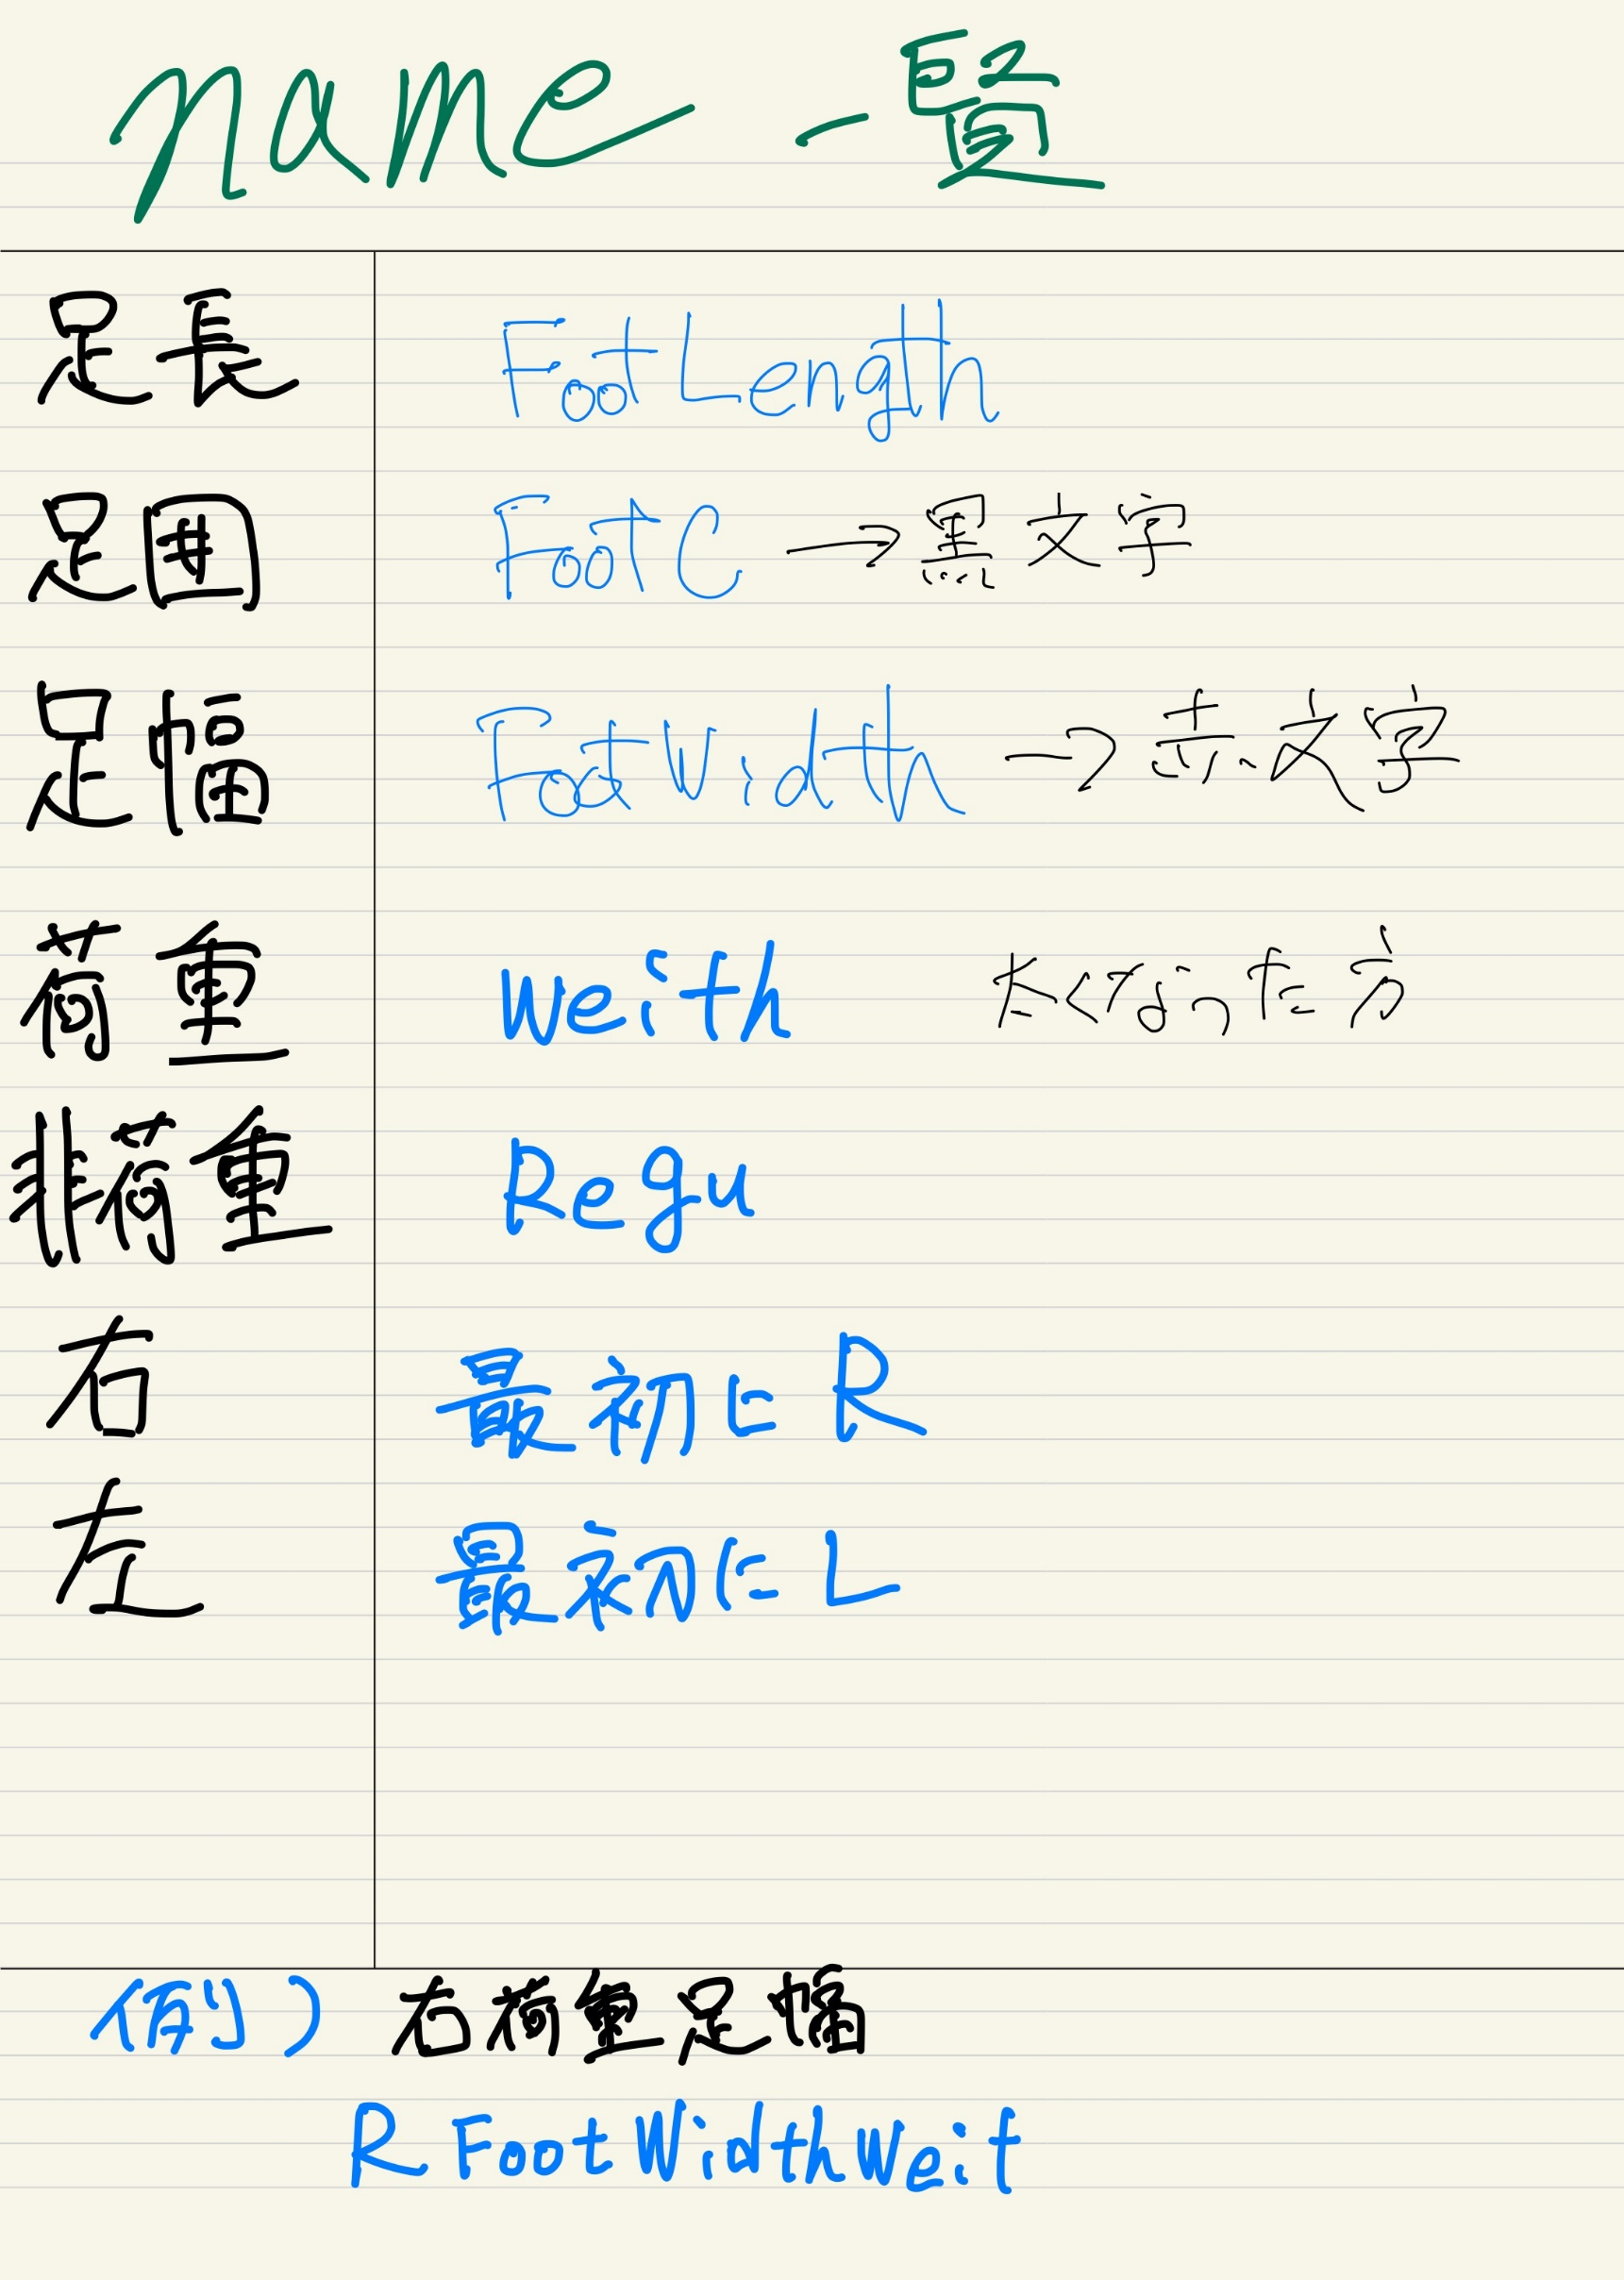 name 一覧
足長 FootLength
足囲 FootC → 黒文字
足幅 FootWidth → 赤文字
荷重 Weith 太くなった方
非荷重 Regu
右 最初に R
左 最初に L
例) 右荷重足幅
R FootWidthWeit